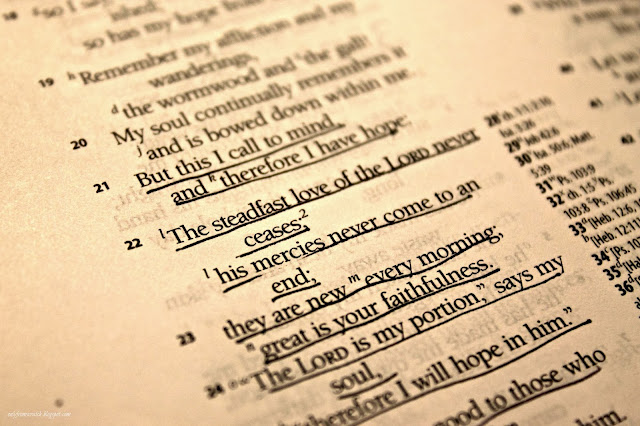 18 "so I say,
ished;
so has my hope from
19 h Remember my affliction and my
wanderings,
d the wormwood and the gall!
20 My soul continually remembers it
j and is bowed down within me.
21 But this I call to mind,
and k therefore I have hope:
22 l The steadfast love of the LORD never
ceases;2
l his mercies never come to an
end;
23 they are new m every morning;
n great is your faithfulness.
24 o "The LORD is my portion," says my
soul,
"therefore I will hope in him."
good to those who
him.
28 ch. 3:1, 2, 16
29
30 Isa. 50:6; Matt.
5:39
31 Ps. 103:9
32 ch. 1:5 Ps.
103:8 Ps. 106:45
33 [Heb. 12:6,
[Heb. 12:
34 [Ps.
35
36
40
41
42